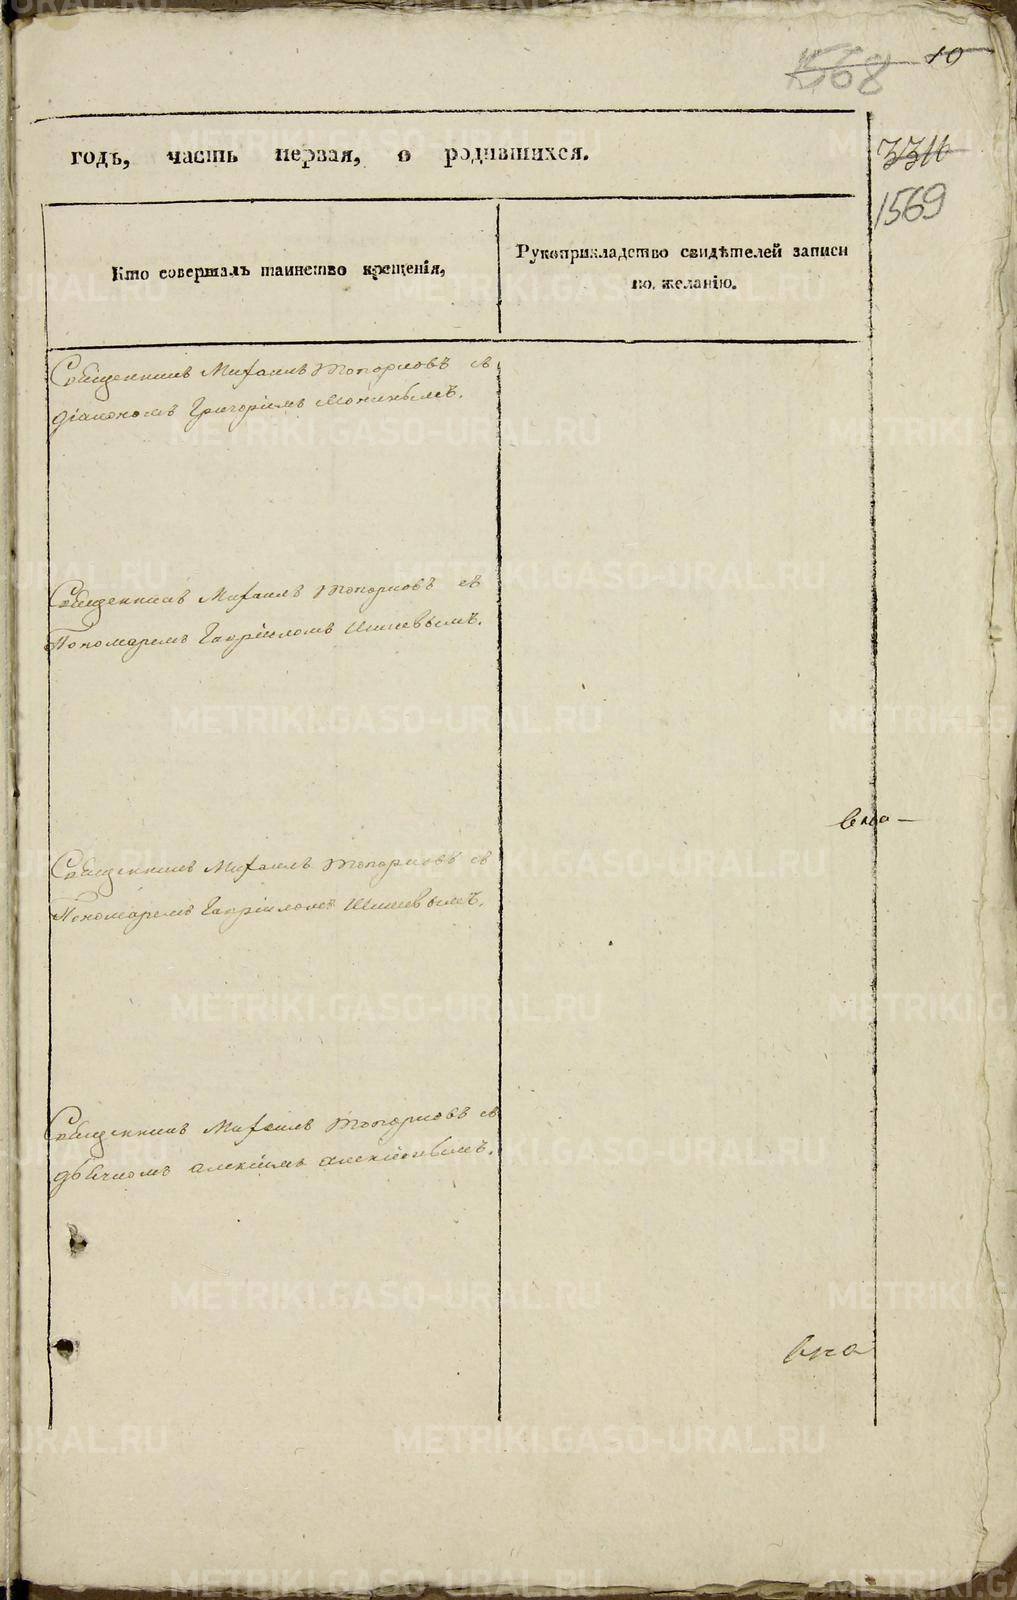 1568 10
годъ, часть первая, о родившихся.
3311
1569
Кто совершалъ таинство крещенія,
Рукоприкладство свидѣтелей записи
по желанію.
Священникъ Михаилъ Топорковъ съ
діакономъ Григоріемъ
Священникъ Михаилъ Топорковъ съ
Пономаремъ Гавріиломъ Шишевымъ.
Священникъ Михаилъ Топорковъ съ
Пономаремъ Гавріиломъ Шишевымъ.
Священникъ Михаилъ Топорковъ съ
дьячкомъ Алексіемъ
METRIKI.GASO-URAL.RU